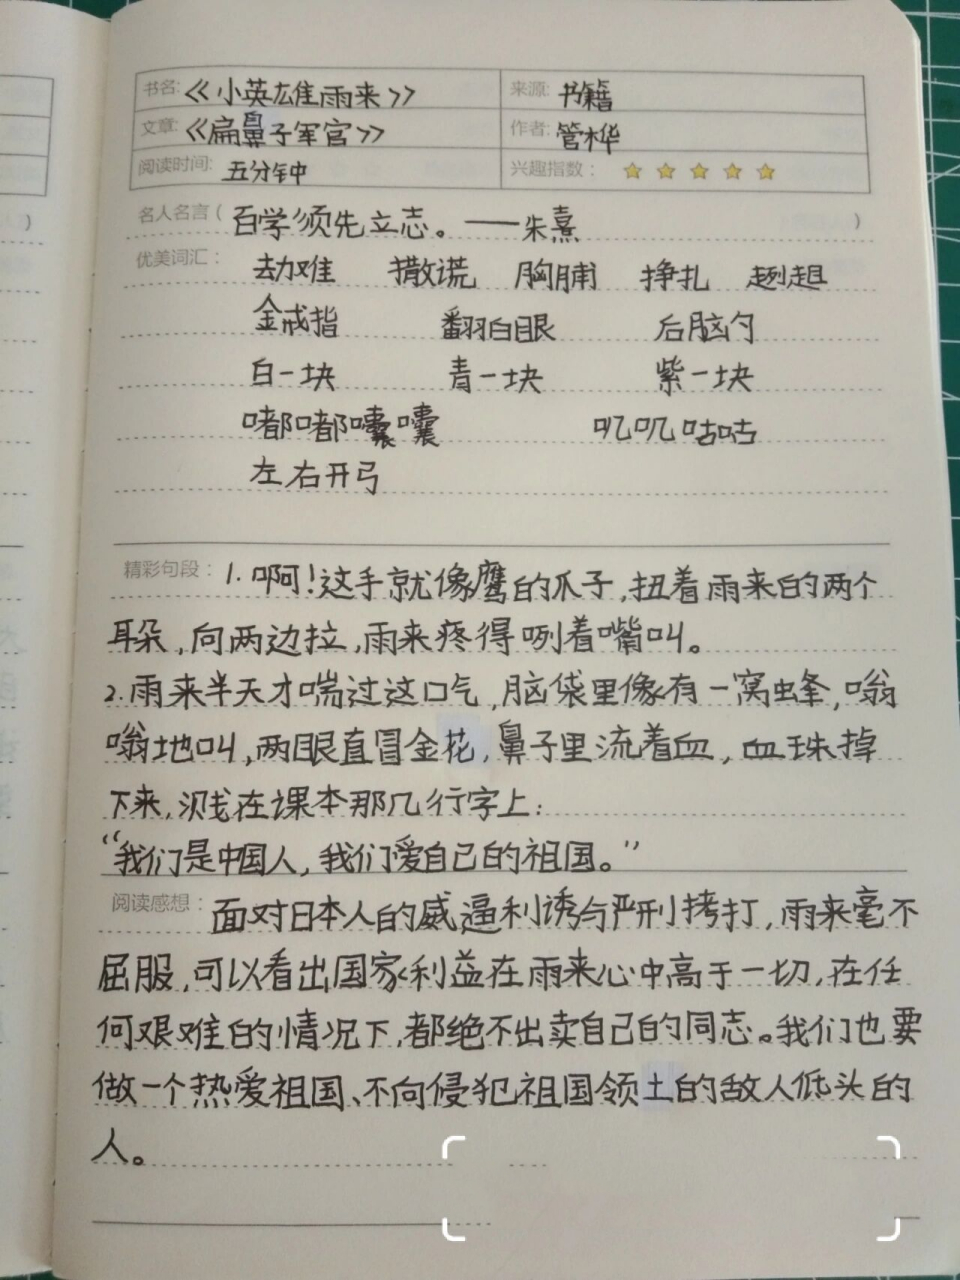 书名:《小英雄雨来》 来源: 书籍
文章:《扁鼻子军官》 作者: 管桦
阅读时间: 五分钟 兴趣指数:
名人名言( 百学须先立志。——朱熹 )
优美词汇: 劫难 撒谎 胸脯 挣扎 趔趄
金戒指 翻白眼 后脑勺
白一块 青一块 紫一块
嘟嘟囔囔 叽叽咕咕
左右开弓
精彩句段: 1.啊!这手就像鹰的爪子,扭着雨来的两个
耳朵,向两边拉,雨来疼得咧着嘴叫。
2.雨来半天才喘过这口气,脑袋里像有一窝蜂,嗡
嗡地叫,两眼直冒金花,鼻子里流着血,血珠掉
下来,溅在课本那几行字上:
“我们是中国人,我们爱自己的祖国。”
阅读感想: 面对日本人的威逼利诱与严刑拷打,雨来毫不
屈服,可以看出国家利益在雨来心中高于一切,在任
何艰难的情况下,都绝不出卖自己的同志。我们也要
做一个热爱祖国、不向侵犯祖国领土的敌人低头的
人。